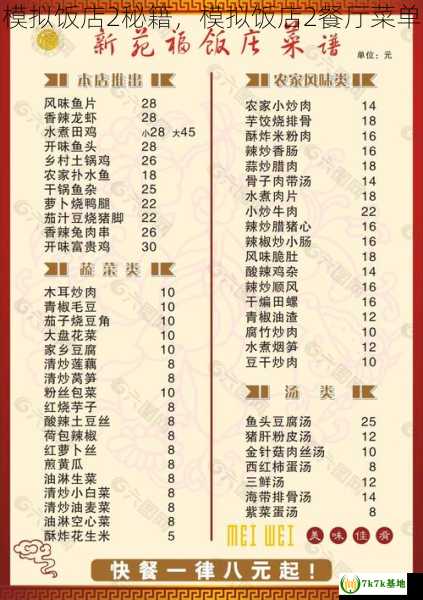 模拟饭店2秘籍，模拟饭店2餐厅菜单
新苑福饭店菜谱
单位：元
本店推出
风味鱼片 28
香辣龙虾 28
水煮田鸡 小28 大45
开味鱼头 28
乡村土锅鸡 26
农家扑水鱼 18
干锅鱼杂 25
萝卜烧鸭腿 22
茄汁豆烧猪脚 22
香辣兔肉串 26
开味富贵鸡 30
蔬菜类
木耳炒肉 10
青椒毛豆 10
茄子烧豆角 10
大盘花菜 10
家乡豆腐 10
清炒莲藕 8
清炒莴笋 8
粉丝包菜 10
红烧芋子 8
酸辣土豆丝 8
荷包辣椒 8
红萝卜丝 8
煎黄瓜 8
油淋生菜 8
清炒小白菜 8
清炒油麦菜 8
油淋空心菜 8
酥炸花生米 5
农家风味类
农家小炒肉 14
芋饺烧排骨 18
酥炸米粉肉 16
辣炒香肠 16
蒜炒腊肉 18
骨子肉带汤 14
水煮肉片 18
小炒牛肉 22
辣炒腊猪心 16
辣椒炒小肠 14
风味脆肚 18
酸辣鸡杂 14
辣炒顺风 16
干煸田螺 16
青椒油渣 12
腐竹炒肉 10
水煮烟笋 12
豆干炒肉 10
汤类
鱼头豆腐汤 25
猪肝粉皮汤 12
金针菇肉丝汤 10
西红柿蛋汤 10
三鲜汤 12
海带排骨汤 14
紫菜蛋汤 8
MEI WEI 美味佳肴
快餐一律八元起！
7k7k基地